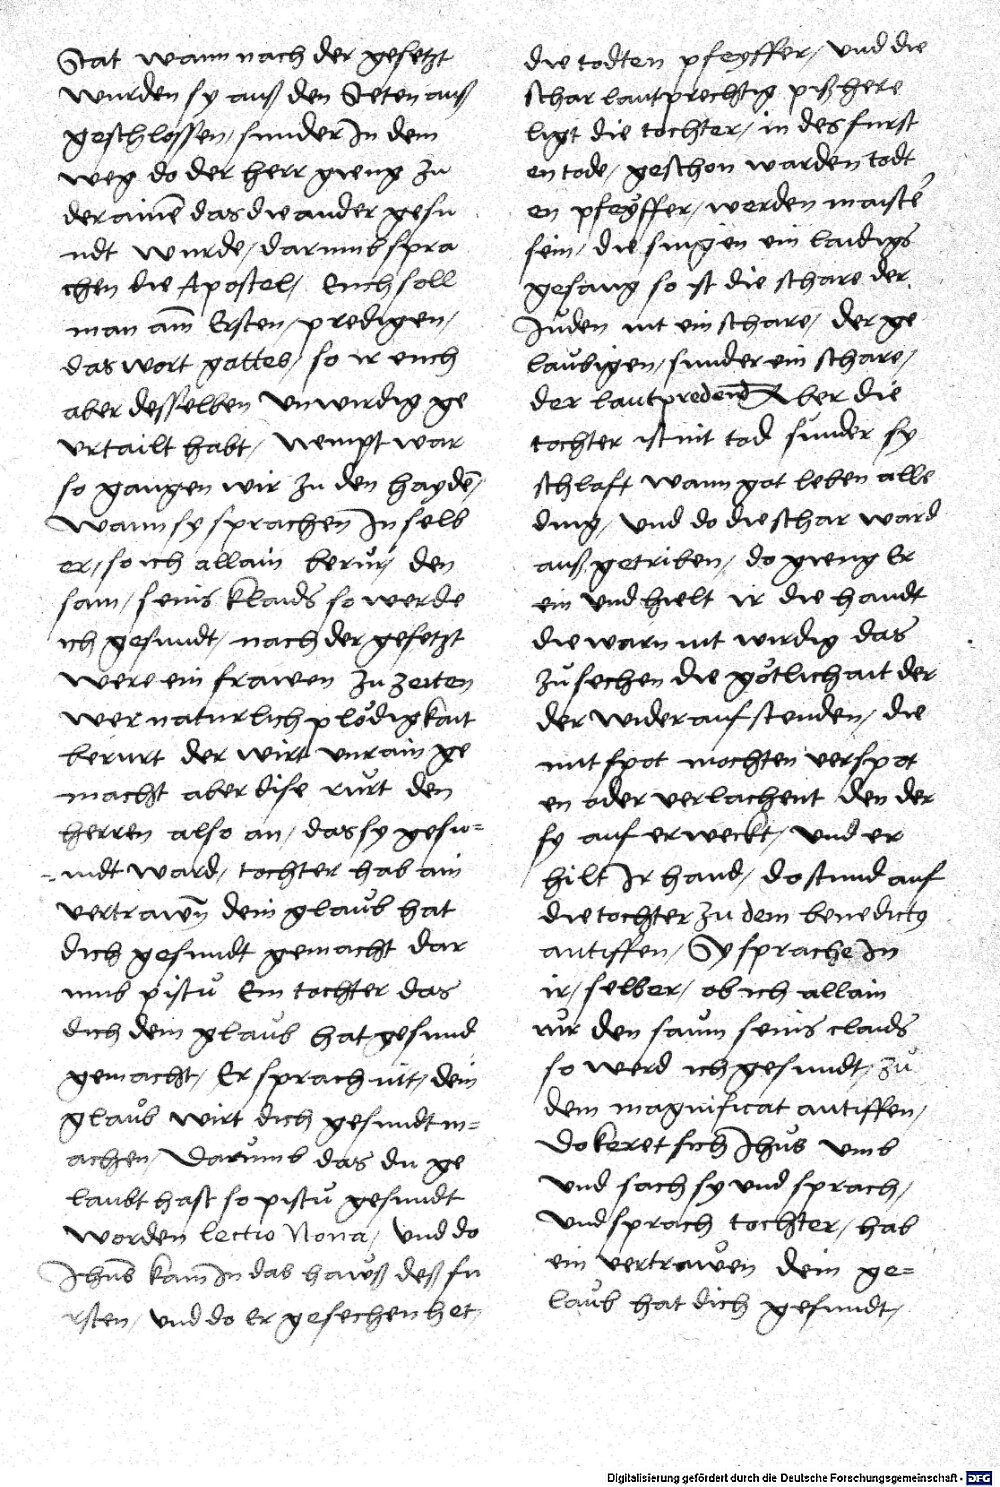 Stat wann nach der gesetzt
wurden sy auß den Steten auß
geschlossen, sunder In dem
weg do der herr gieng zu
der ainē das die ander gesu
ndt wurde, darumb spra
chen die Apostel, Euch soll
man am̄ Ersten, predigen,
das wort gottes, so ir euch
aber desselben unwirdig ge
urtailt habt, Nempt war
so gangen wir zu den haydē,
wann sy sprachen In selb
er, so ich allain berür den
sam, seins klaids so werde
ich gesundt, nach der gesetzt
were ein frawen zu zeiten
wer naturlich plödigkait
berurt der wirt unrain ge
macht aber dise rürt den
herren also an, das sy gesu=
=ndt ward, tochter hab ain
vertrawēn dein glaub hat
dich gesundt gemacht dar
umb pistu Ein tochter das
dich dein glaub hat gesund
gemacht, Er sprach nit, dein
glaub wirt dich gesundt m=
achen, Darumb das du ge
laubt hast so pistu gesundt
worden lectio Nona, Und do
Jhūs kam In das hawß deß fu
rsten, und do Er gesechen het,
die todten pfeyffer, und die
schar lautprechtig piß here
ligt die tochter, in des furst
en tode, geschon warden todt
en pfeÿffer, werden maistē
sein, die singen ein laidigs
gesang so ist die schare der
Juden nit ein schare, der ge
laubigen, sunder ein schare,
der lautpredend Aber die
tochter ist nit tod sunder sy
schlaft wann got leben alle
ding, und do die schar ward
auß getriben, do gieng Er
ein und hielt ir die handt
die warn nit wirdig das
zu sechen die götlichait der
der wider aufstenden, die
mit spot mochten verspot
en oder verlachent den der
sy auf erweckt, und er
hilt Ir hand, do stund auf
die tochter zu dem benedictꝰ
antiffen, Sy sprache In
ir, selber, ob ich allain
wir den saum seins claids
so werd ich gesundt, zu
dem magnificat antiffen,
do keret sich Jhūs umb
und sach sy und sprach,
und sprach tochter, hab
ein vertrawen dein ge=
laub hat dich gesundt,
Digitalisierung gefördert durch die Deutsche Forschungsgemeinschaft - DFG